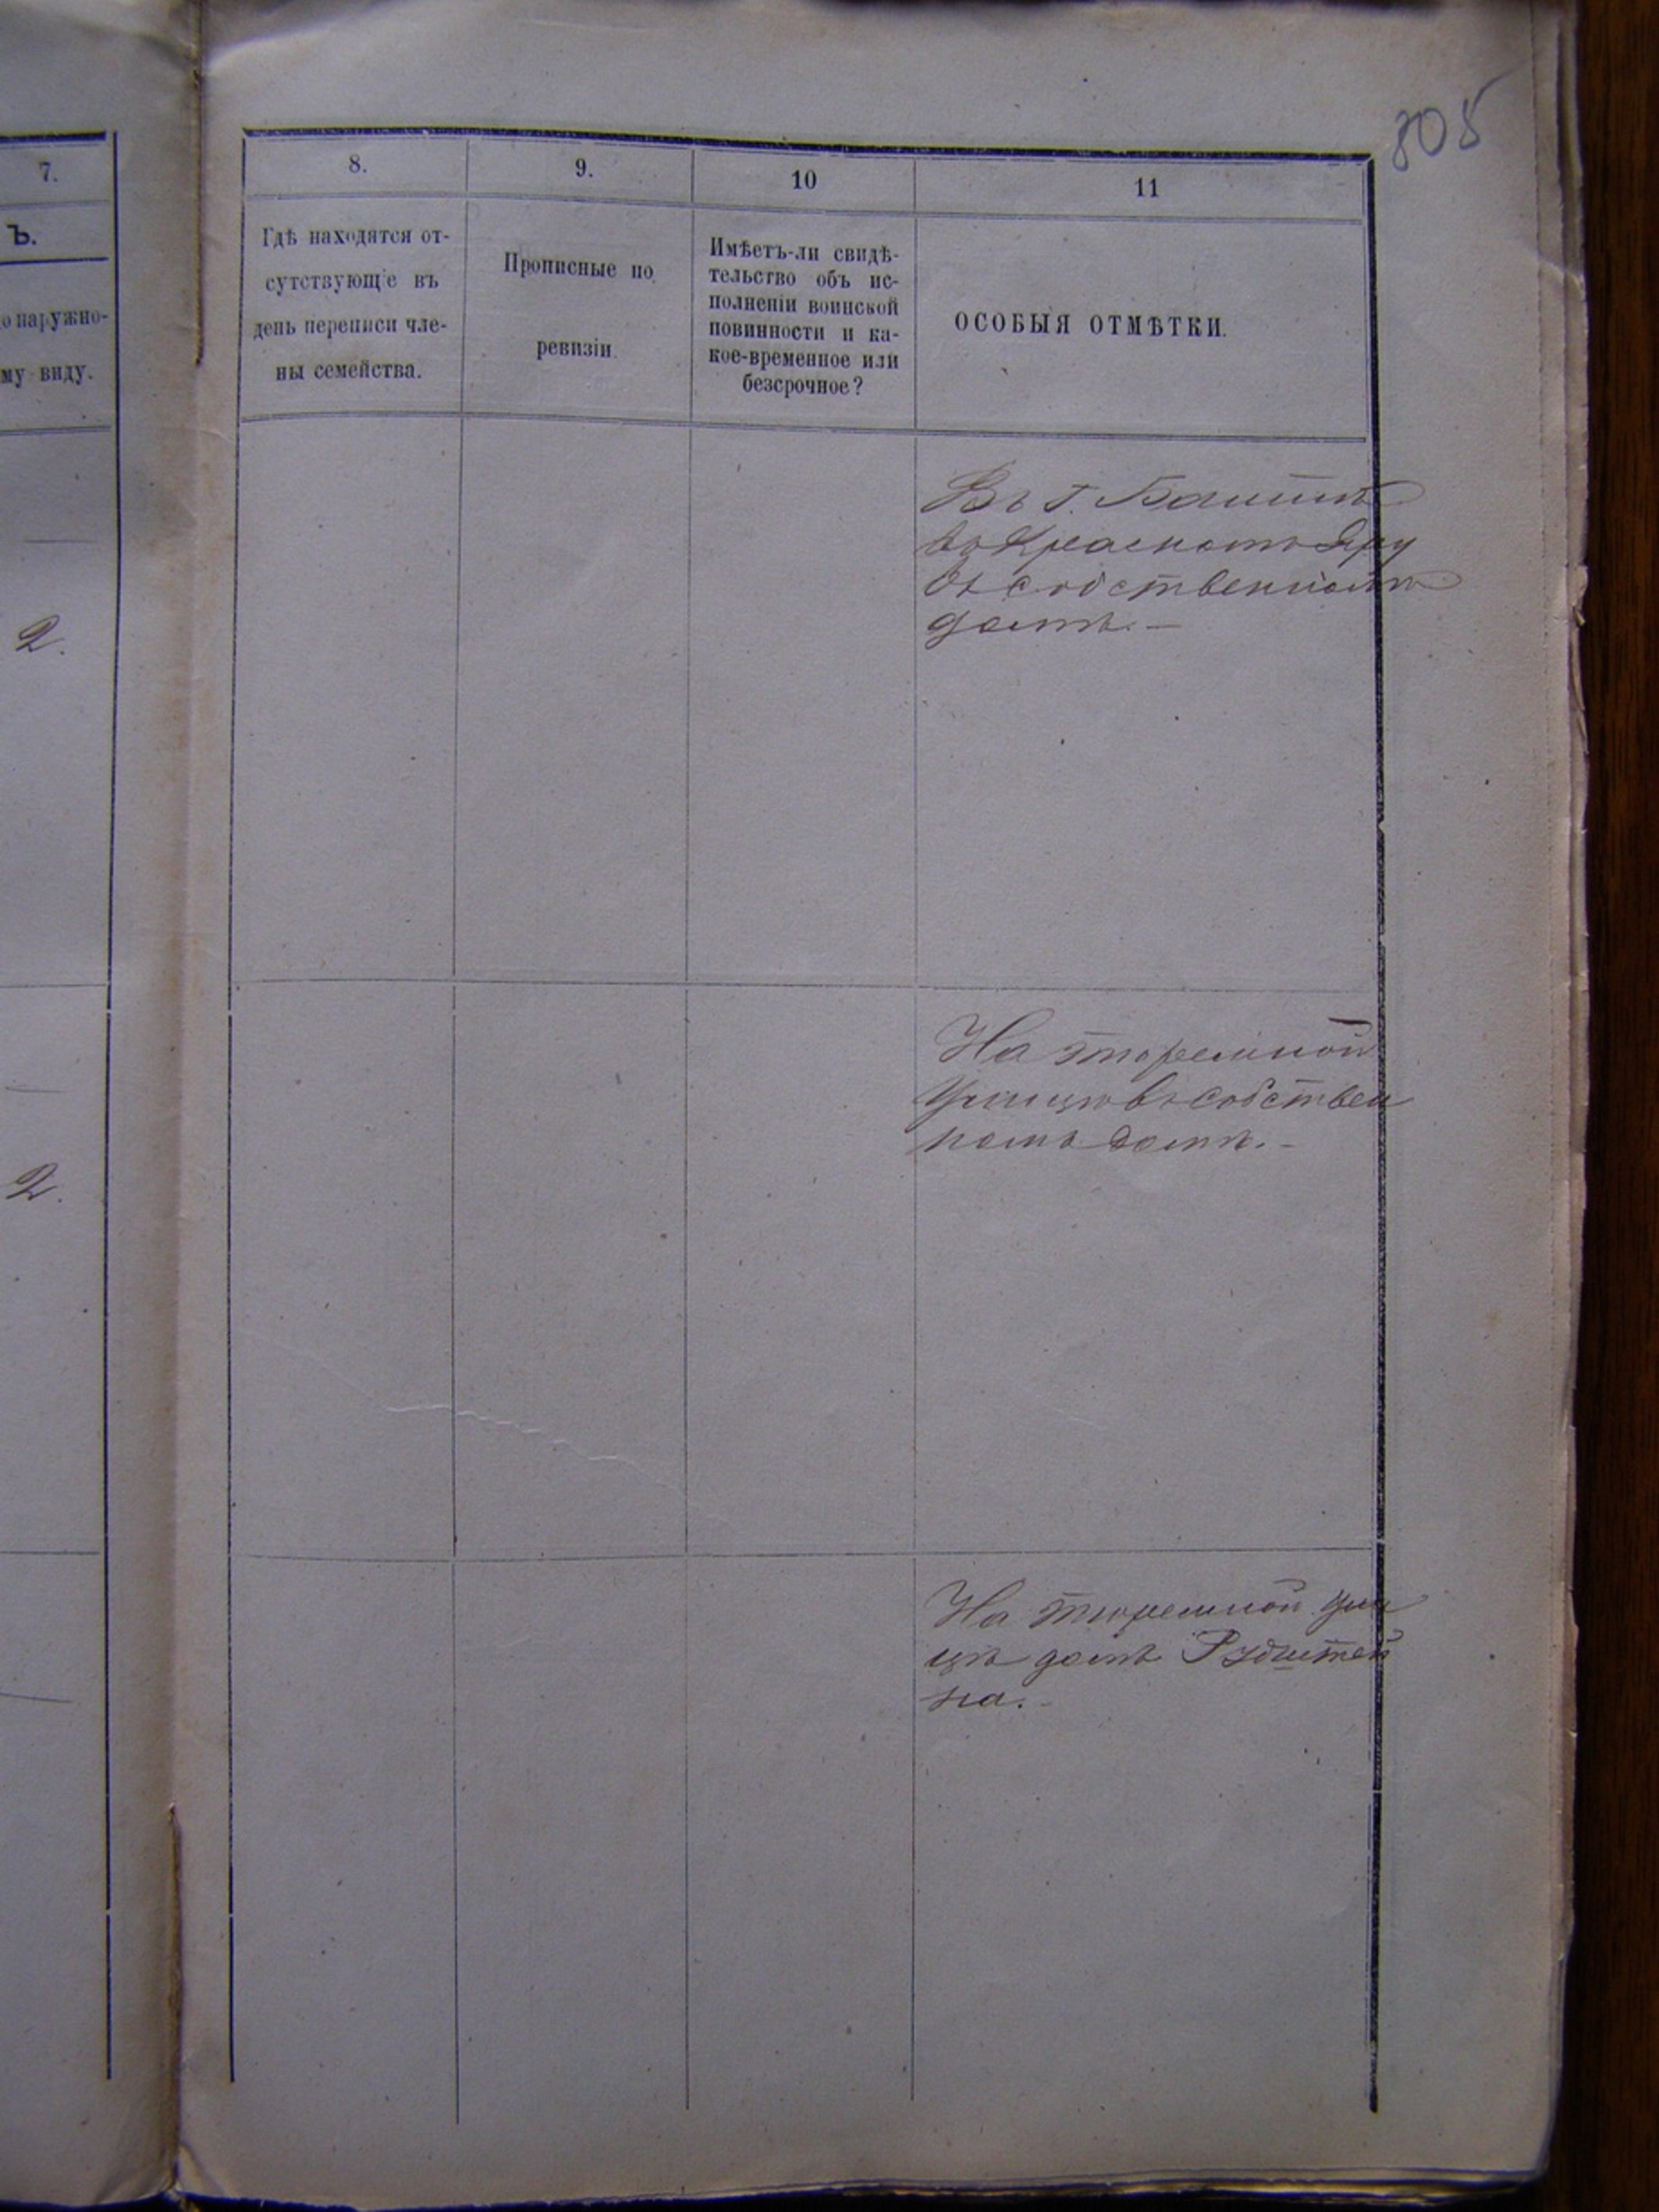 805
7.
Ъ.
о наружно-
му виду.
2.
2.
8.
9.
10
11
Гдѣ находятся от-
сутствующіе въ
день переписи чле-
ны семейства.
Прописные по
ревизіи.
Имѣетъ-ли свидѣ-
тельство объ ис-
полненіи воинской
повинности и ка-
кое-временное или
безсрочное?
ОСОБЫЯ ОТМѢТКИ.
Въ г.
въ Красномъ Яру
въ собственномъ
домѣ. —
На тюремной
улицѣ въ собствен
номъ домѣ. -
На тюремной ули
цѣ домѣ
на. -